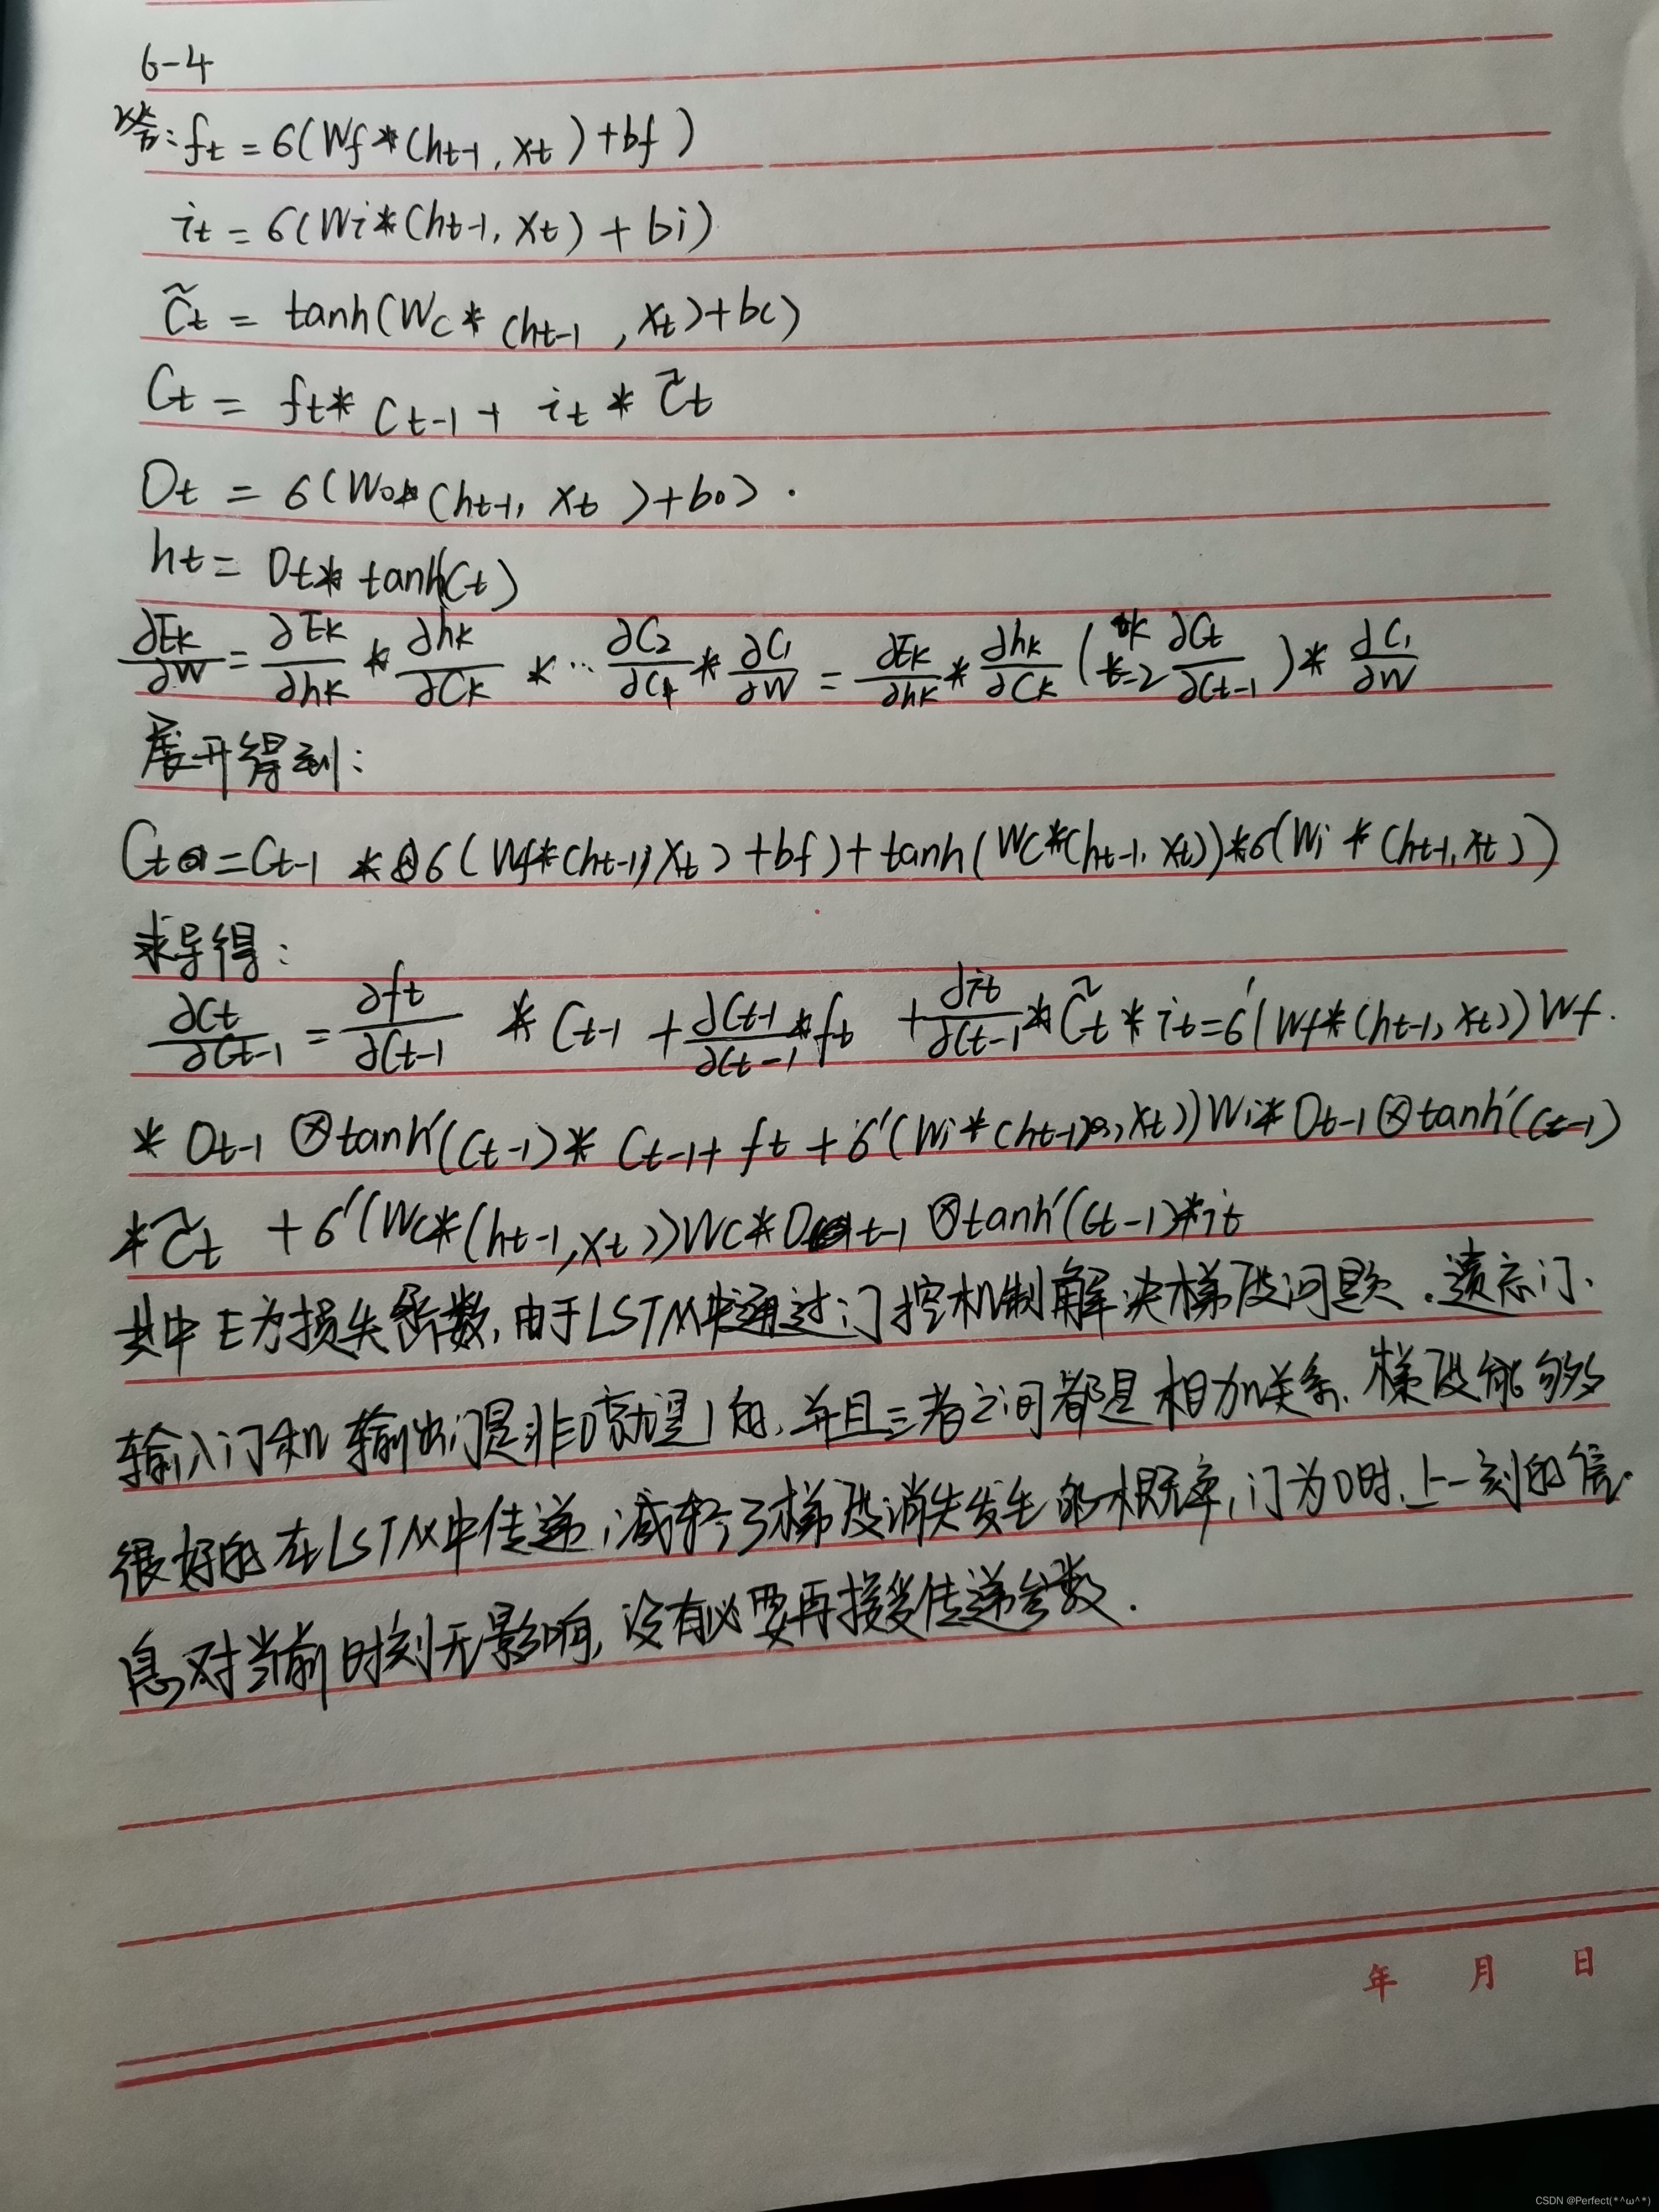 6-4
答: ft = б(Wf*(ht-1, xt)+bf)
it = б(Wi*(ht-1, xt) + bi)
C̃t = tanh(Wc*(ht-1, xt)+bc)
Ct = ft* Ct-1 + it * C̃t
Ot = б(Wo*(ht-1, xt)+bo).
ht = Ot* tanh(Ct)
∂Ek/∂W = ∂Ek/∂hk * ∂hk/∂Ck * … ∂C2/∂C1 * ∂C1/∂W = ∂Ek/∂hk * ∂hk/∂Ck ( k t=2 ∂Ct/∂Ct-1 ) * ∂C1/∂W
展开得到:
Ct = Ct-1 * б(Wf*(ht-1, xt)+bf)+tanh(Wc*(ht-1, xt))*б(Wi*(ht-1, xt))
求导得:
∂Ct/∂Ct-1 = ∂ft/∂Ct-1 * Ct-1 + ∂Ct-1/∂Ct-1 * ft + ∂it/∂Ct-1 * C̃t * it = б'(Wf*(ht-1, xt))Wf.
* Ot-1 ⊗ tanh'(Ct-1)* Ct-1+ ft + б'(Wi*(ht-1, xt))Wi* Ot-1 ⊗ tanh'(Ct-1)
*C̃t + б'(Wc*(ht-1, xt))Wc*Ot-1 ⊗ tanh'(Ct-1)*it
其中E为损失函数, 由于LSTM中通过门控机制解决梯度问题.遗忘门、
输入门和输出门是非0就是1的, 并且三者之间都是相加关系. 梯度能够
很好的在LSTM中传递, 减轻了梯度消失发生的概率, 门为0时, 上一刻的信
息对当前时刻无影响, 没有必要再接受传递参数.
年 月 日
CSDN @Perfect(*^ω^*)